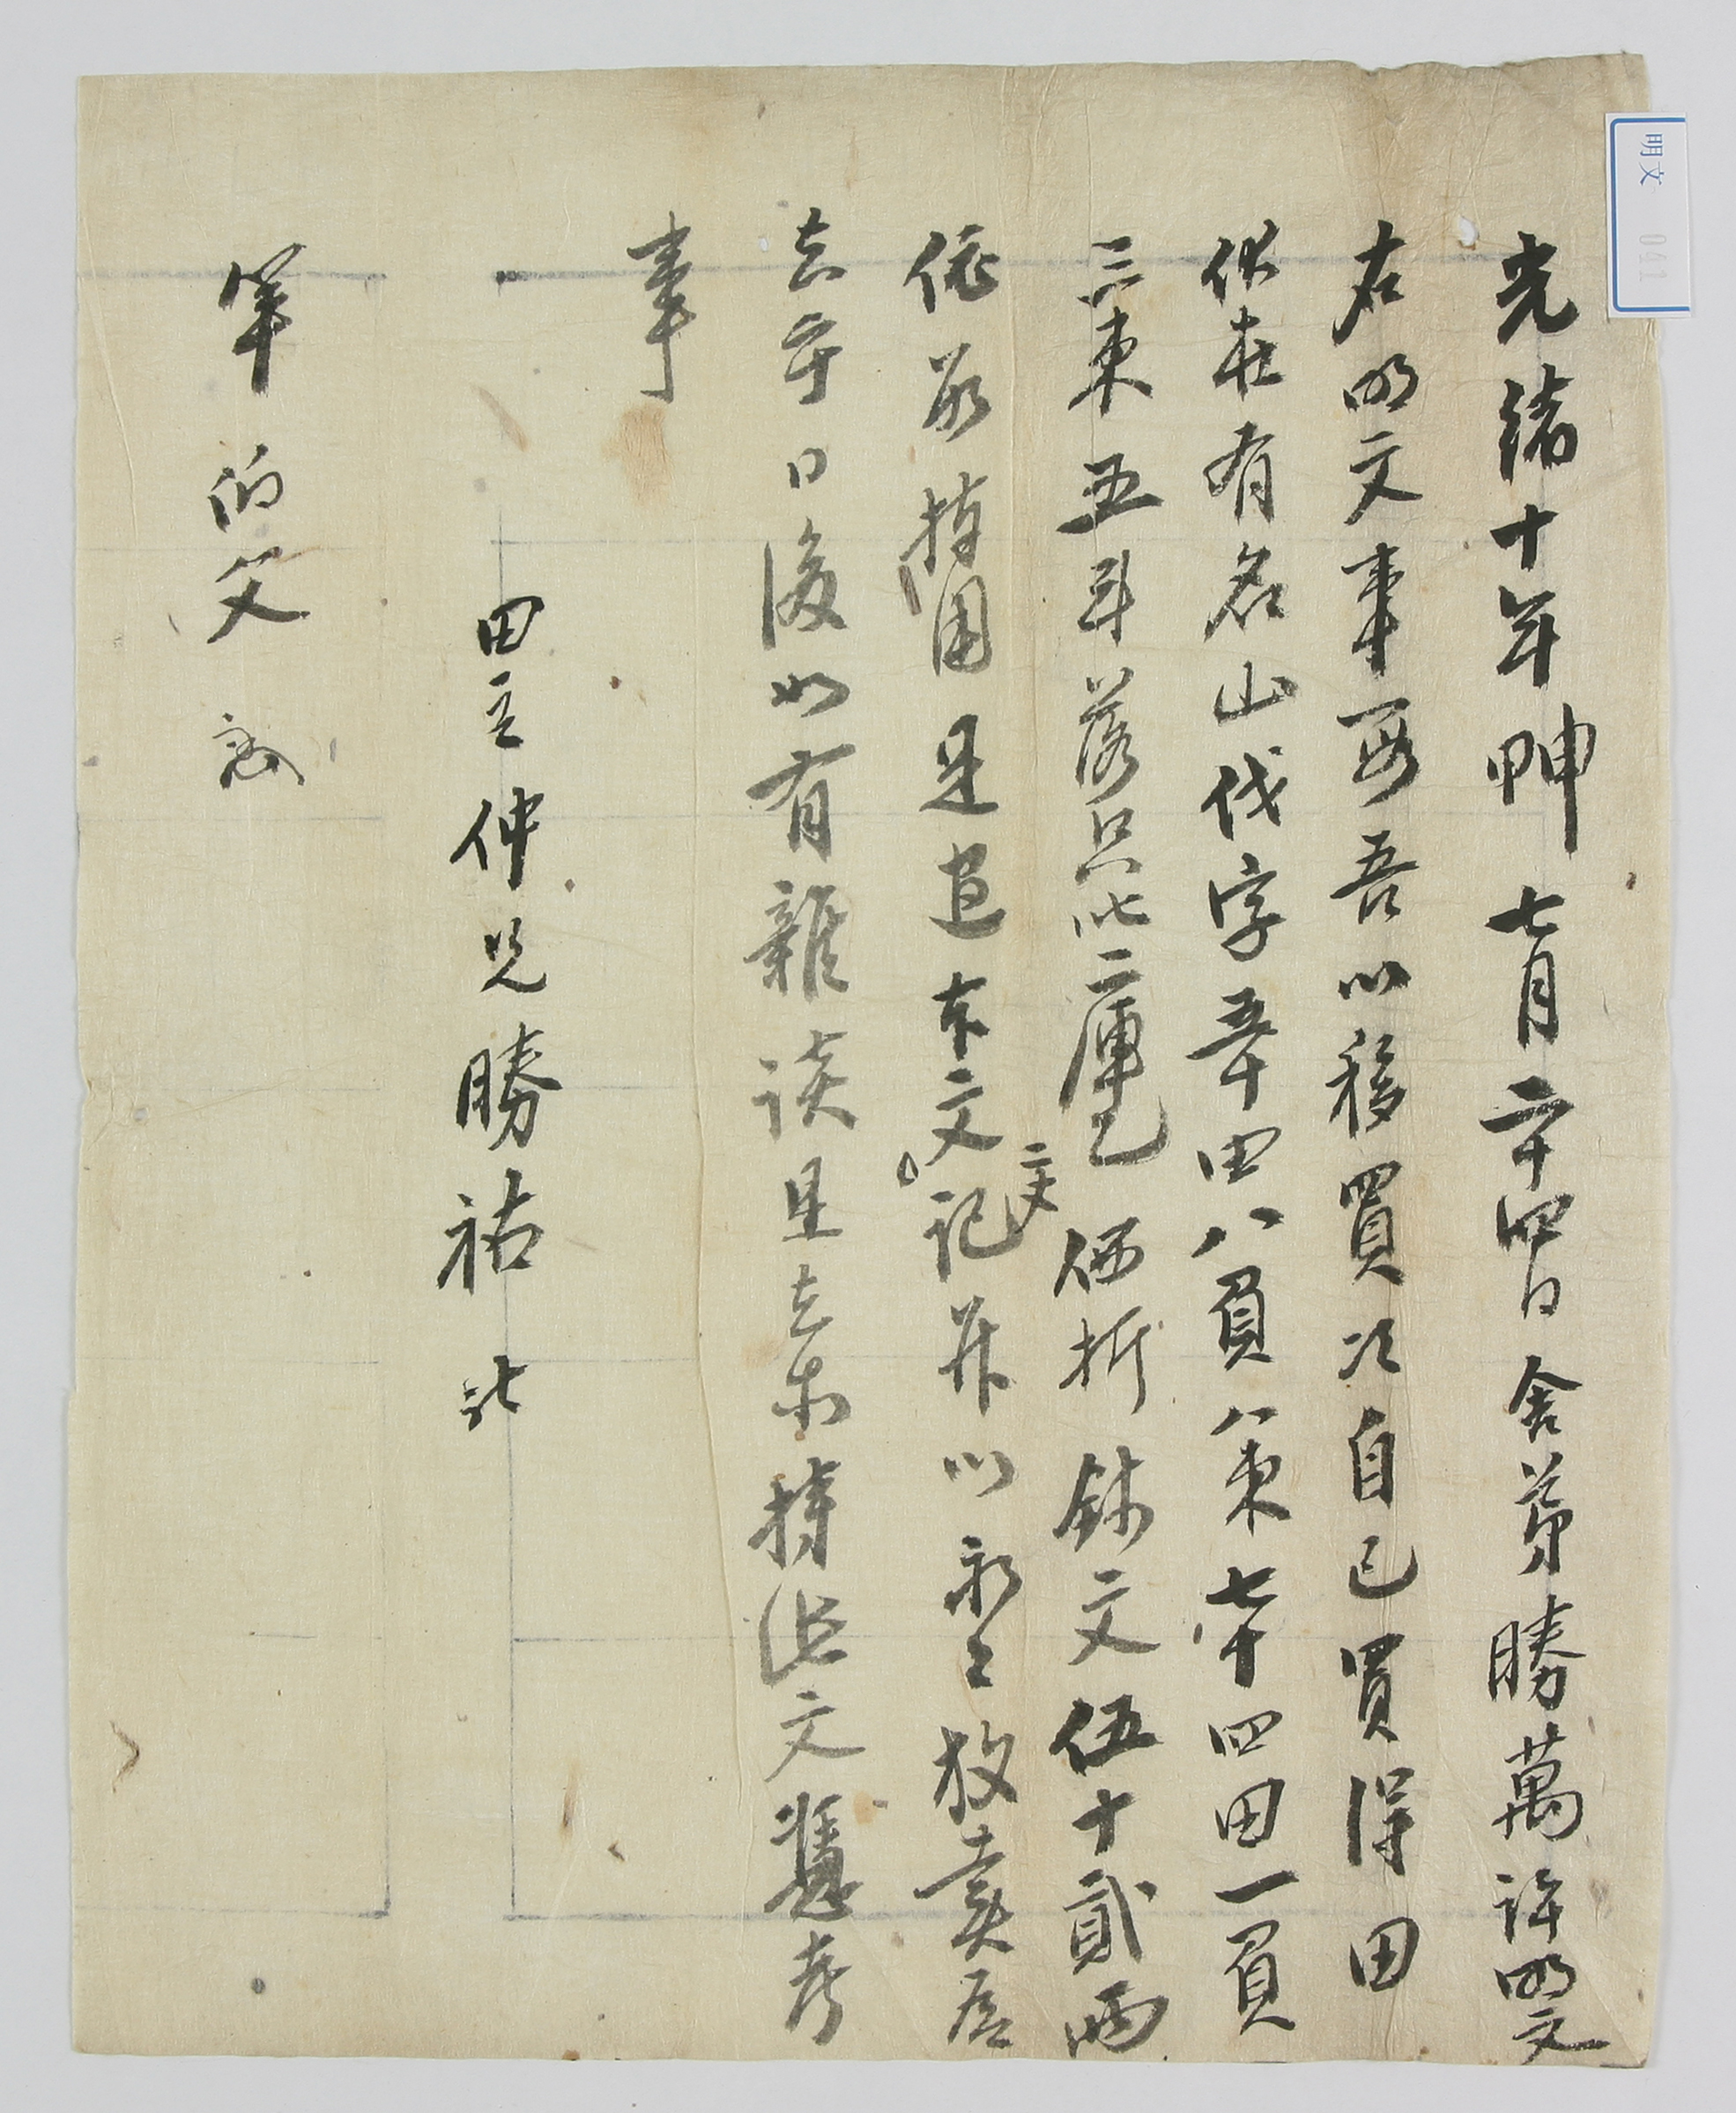 光緖十年甲申七月二十四日舍弟勝萬許明文
右明文事段吾以移買次自己買得田
伏在有名山伐字五十田八負八束七十四田一負
三束五斗落只此二庫乙価折錢文伍十貳兩
交
依數捧用是遣本文記幷以永永放賣爲
去乎日後如有雜談是去等持此文憑考
事
田主仲兄勝祐
筆伯父
明文 041